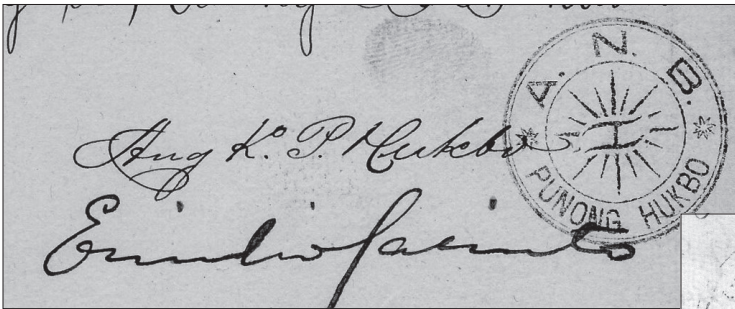 Ang K. P. Hukbo
Emilio Jacinto
A. N. B.
PUNONG HUKBO